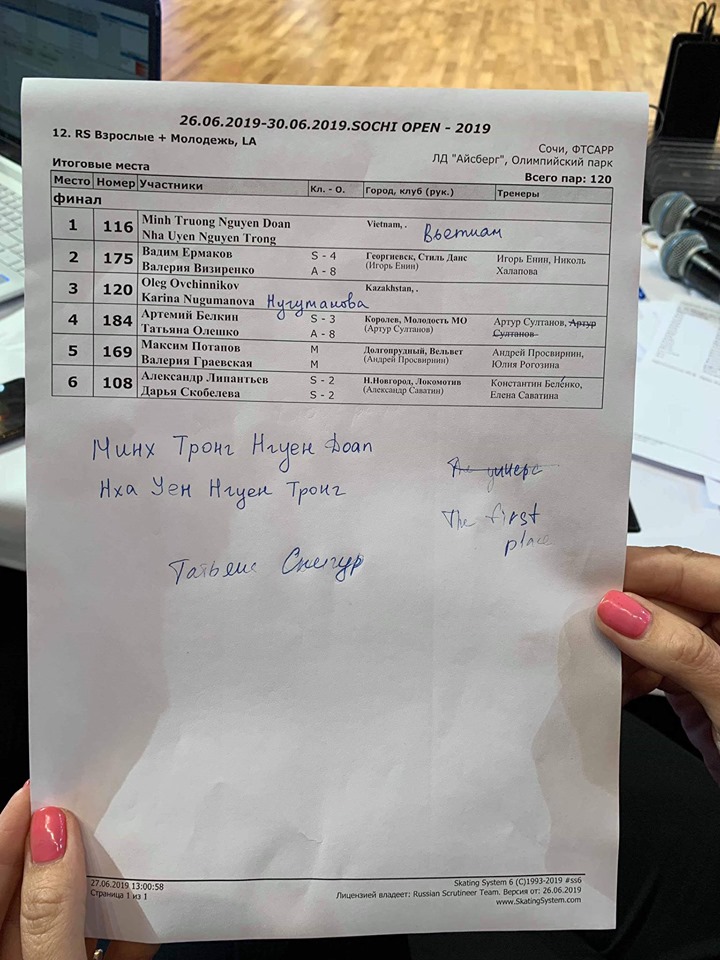 26.06.2019-30.06.2019.SOCHI OPEN - 2019
12. RS Взрослые + Молодежь, LA
Сочи, ФТСАРР
ЛД "Айсберг", Олимпийский парк
Итоговые места
Всего пар: 120
Место Номер Участники Кл. - О. Город, клуб (рук.) Тренеры
финал
1 116 Minh Truong Nguyen Doan Vietnam, . Вьетнам
Nha Uyen Nguyen Trong
2 175 Вадим Ермаков S - 4 Георгиевск, Стиль Данс Игорь Енин, Николь
Валерия Визиренко A - 8 (Игорь Енин) Халапова
3 120 Oleg Ovchinnikov Kazakhstan, .
Karina Nugumanova Нугуманова
4 184 Артемий Белкин S - 3 Королев, Молодость МО Артур Султанов, Артур
Татьяна Олешко A - 8 (Артур Султанов) Султанов
5 169 Максим Потапов M Долгопрудный, Вельвет Андрей Просвирнин,
Валерия Граевская M (Андрей Просвирнин) Юлия Рогозина
6 108 Александр Липантьев S - 2 Н.Новгород, Локомотив Константин Беленко,
Дарья Скобелева S - 2 (Александр Саватин) Елена Саватина
Минх Тронг Нгуен Доан
Нха Уен Нгуен Тронг
The first
place
Татьяна Снигур
27.06.2019 13:00:58
Страница 1 из 1
Skating System 6 (C)1993-2019 #ss6
Лицензией владеет: Russian Scrutineer Team. Версия от: 26.06.2019
www.SkatingSystem.com